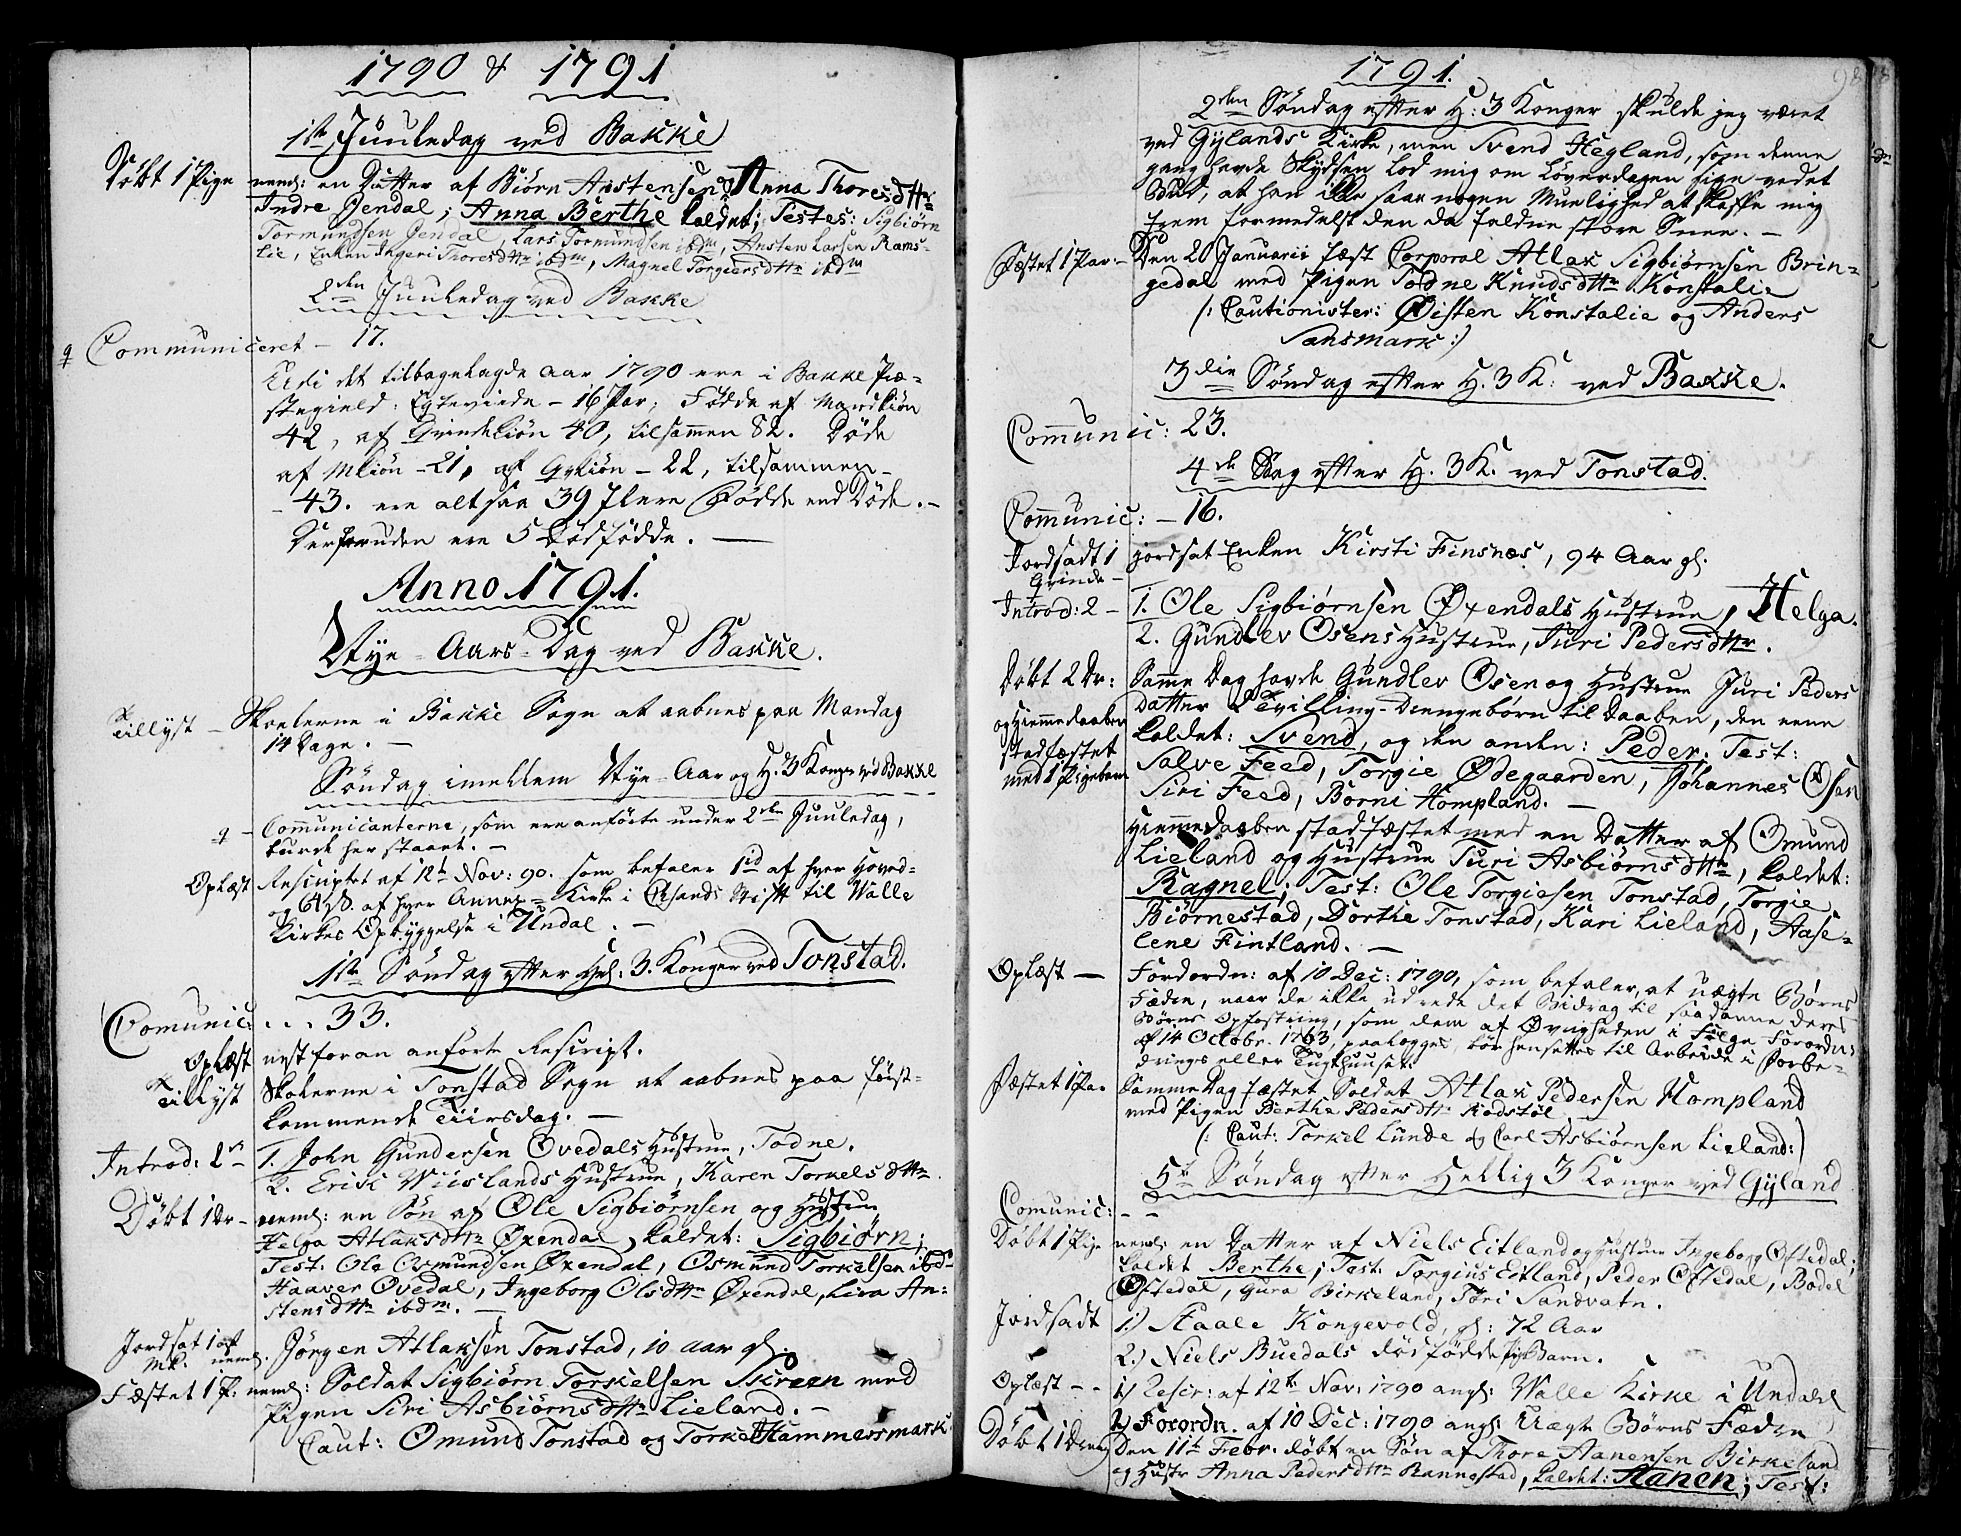 1790 & 1791
1ste Juuledag ved Bakke
Döbt 1 Pige neml: en Datter af Biörn Anstensen og Anna Thoresdttr
Indre Jendal; Anna Berthe kaldet; Testes: Sigbiörn
Tormundsen Jendal, Lars Tormundsen ibdm, Ansten Larsen Rams-
lie, Enken Ingeri Thoresdttr ibdm, Magnel Torgiersdttr ibdm
2den Juuledag ved Bakke
Communiceret – 17.
Udi det tilbagelagde Aar 1790 ere i Bakke Præ-
stegield: Egteviede – 16 Par; Födde af Mandkiön
42, af Qvindekiön 40, tilsammen 82. Döde
af Mkiön – 21, af Qvkiön – 22, tilsammen –
– 43. ere altsaa 39 flere Födde end Döde. –
Derforuden ere 5 Dödfödde. –
Anno 1791.
Nye-Aars-Dag ved Bakke.
Tillyst – Skolerne i Bakke Sogn at aabnes paa Mandag
14 Dage. –
Söndag imellem Nye-Aar og H. 3 Konger ved Bakke
Communicanterne, som ere anförte under 2den Juuledag,
burde her staaet. –
Oplæst Rescriptet af 12te Nov: 90. som befaler 1 rd af hver Hoved-
og 64 ß. af hver Annex-Kirke i Chsands Stift til Walle
Kirkes Opbyggelse i Undal. –
1ste Söndag efter Hel: 3. Konger ved Tonstad.
Comunic: . . . 33.
Oplæst nest foran anförte Rescript.
Tillyst Skolerne i Tonstad Sogn at aabnes paa först-
kommende Tiirsdag. –
Introd: 2 – 1. John Gundersen Ovedals Hustrue, Todne.
2. Erik Wiislands Hustrue, Karen Torkelsdttr.
Döbt 1 Dr – neml: en Sön af Ole Sigbiörnsen og Hustru
Helga Atlaksdttr Öxendal, kaldet: Sigbiörn;
Test: Ole Osmundsen Öxendal, Osmund Torkelsen ibd
Haaver Ovedal, Ingeborg Olsdttr Öxendal, Liva An-
stensdttr ibdm. –
Jordsat 1 af
Mk. neml. Jörgen Atlaksen Tonstad, 10 Aar gl.
Fæstet 1 P: neml: Soldat Sigbiörn Torkelsen Skreen med
Pigen Siri Asbiörnsdttr Lieland. –
Caut: Omund Tonstad og Torkel Hammersmark.
1791.
2den Söndag efter H: 3 Konger skulde jeg været
ved Gylands Kirke, men Svend Hegland, som denne
gang havde Skydsen lod mig om Löverdagen sige ved et
Bud, at han ikke saae nogen Muelighed at skaffe mig
frem formedelst den da faldne store Snee. –
Fæstet 1 Par – Den 20 Januarii fæst Corporal Atlak Sigbiörnsen Brin-
gedal med Pigen Todne Knudsdttr Konstali:
(: Cautionister: Öisten Konstalie og Anders
Sansmark :)
3die Söndag efter H. 3 K: ved Bakke.
Comunic: 23.
4de Sdag efter H. 3 K. ved Tonstad.
Comunic: – 16.
Jordsadt 1 jordsat Enken Kirsti Finsnæs, 94 Aar gl.
Qvinde –
Introd: 2 – 1. Ole Sigbiörnsen Öxendals Hustrue, Helga.
2. Gundlev Osens Hustrue, Juri Pedersdttr.
Döbt 2 Dr: Samme Dag havde Gundlev Osen og Hustrue Juri Peders
og Hiemmedaaben Datter 2 Tvilling-Drengebörn til Daaben, den eene
stadfæstet kaldet: Svend, og den anden: Peder. Test:
med 1 Pigebarn Salve Feed, Torgie Ødegaarden, Johannes Osen
Siri Feed, Borni Hompland. –
Hiemmedaaben stadfæstet med en Datter af Omund
Lieland og Hustrue Turi Asbiörnsdttr, kaldet:
Ragnel; Test: Ole Torgiesen Tonstad, Torgie
Biörnestad, Dorthe Tonstad, Kari Lieland, Aase-
lene Fintland. –
Oplæst – Forordn: af 10 Dec: 1790, som befaler, at uægte Börns
Fædre, naar de ikke udrede det Bidrag til saadanne deres
Börns Opfostring, som dem af Øvrigheden i Fölge Forordn:
af 14 Octobr. 1763, paalegges, bör hensettes til Arbeide i Forbe-
drings eller Tugthuuset.
Fæstet 1 Par Samme Dag fæstet Soldat Atlak Pedersen Hompland
med Pigen Berthe Pedersdttr Rodstöl
(: Caut: Torkel Lunde og Carl Asbiörnsen Lieland :)
5te Söndag efter Hellig 3 Konger ved Gyland
Comunic: – –
Döbt 1 Pige neml: en Datter af Niels Eitland og Hustrue Ingeborg Öftedal;
kaldet Berthe; Test: Torgius Eitland, Peder Öftedal, Bodel
Öftedal, Gura Birkeland, Töri Sandvatn.
Jordsadt 1.) Staale Kongevold, gl: 72 Aar
2.) Niels Buedals dödfödde Barn.
Oplæst – – 1) Rescr: af 12te Nov: 1790 angl: Walle Kirke i Undahl
2) Forordn. af 10 Dec: 1790 angl: Uægte Börns Fædre
Döbt 1 Dreng Den 11te Febr. döbt en Sön af Thore Aanensen Birkeland
og Hustr Anna Pedersdttr Rannestad, kaldet: Aanen; Test: